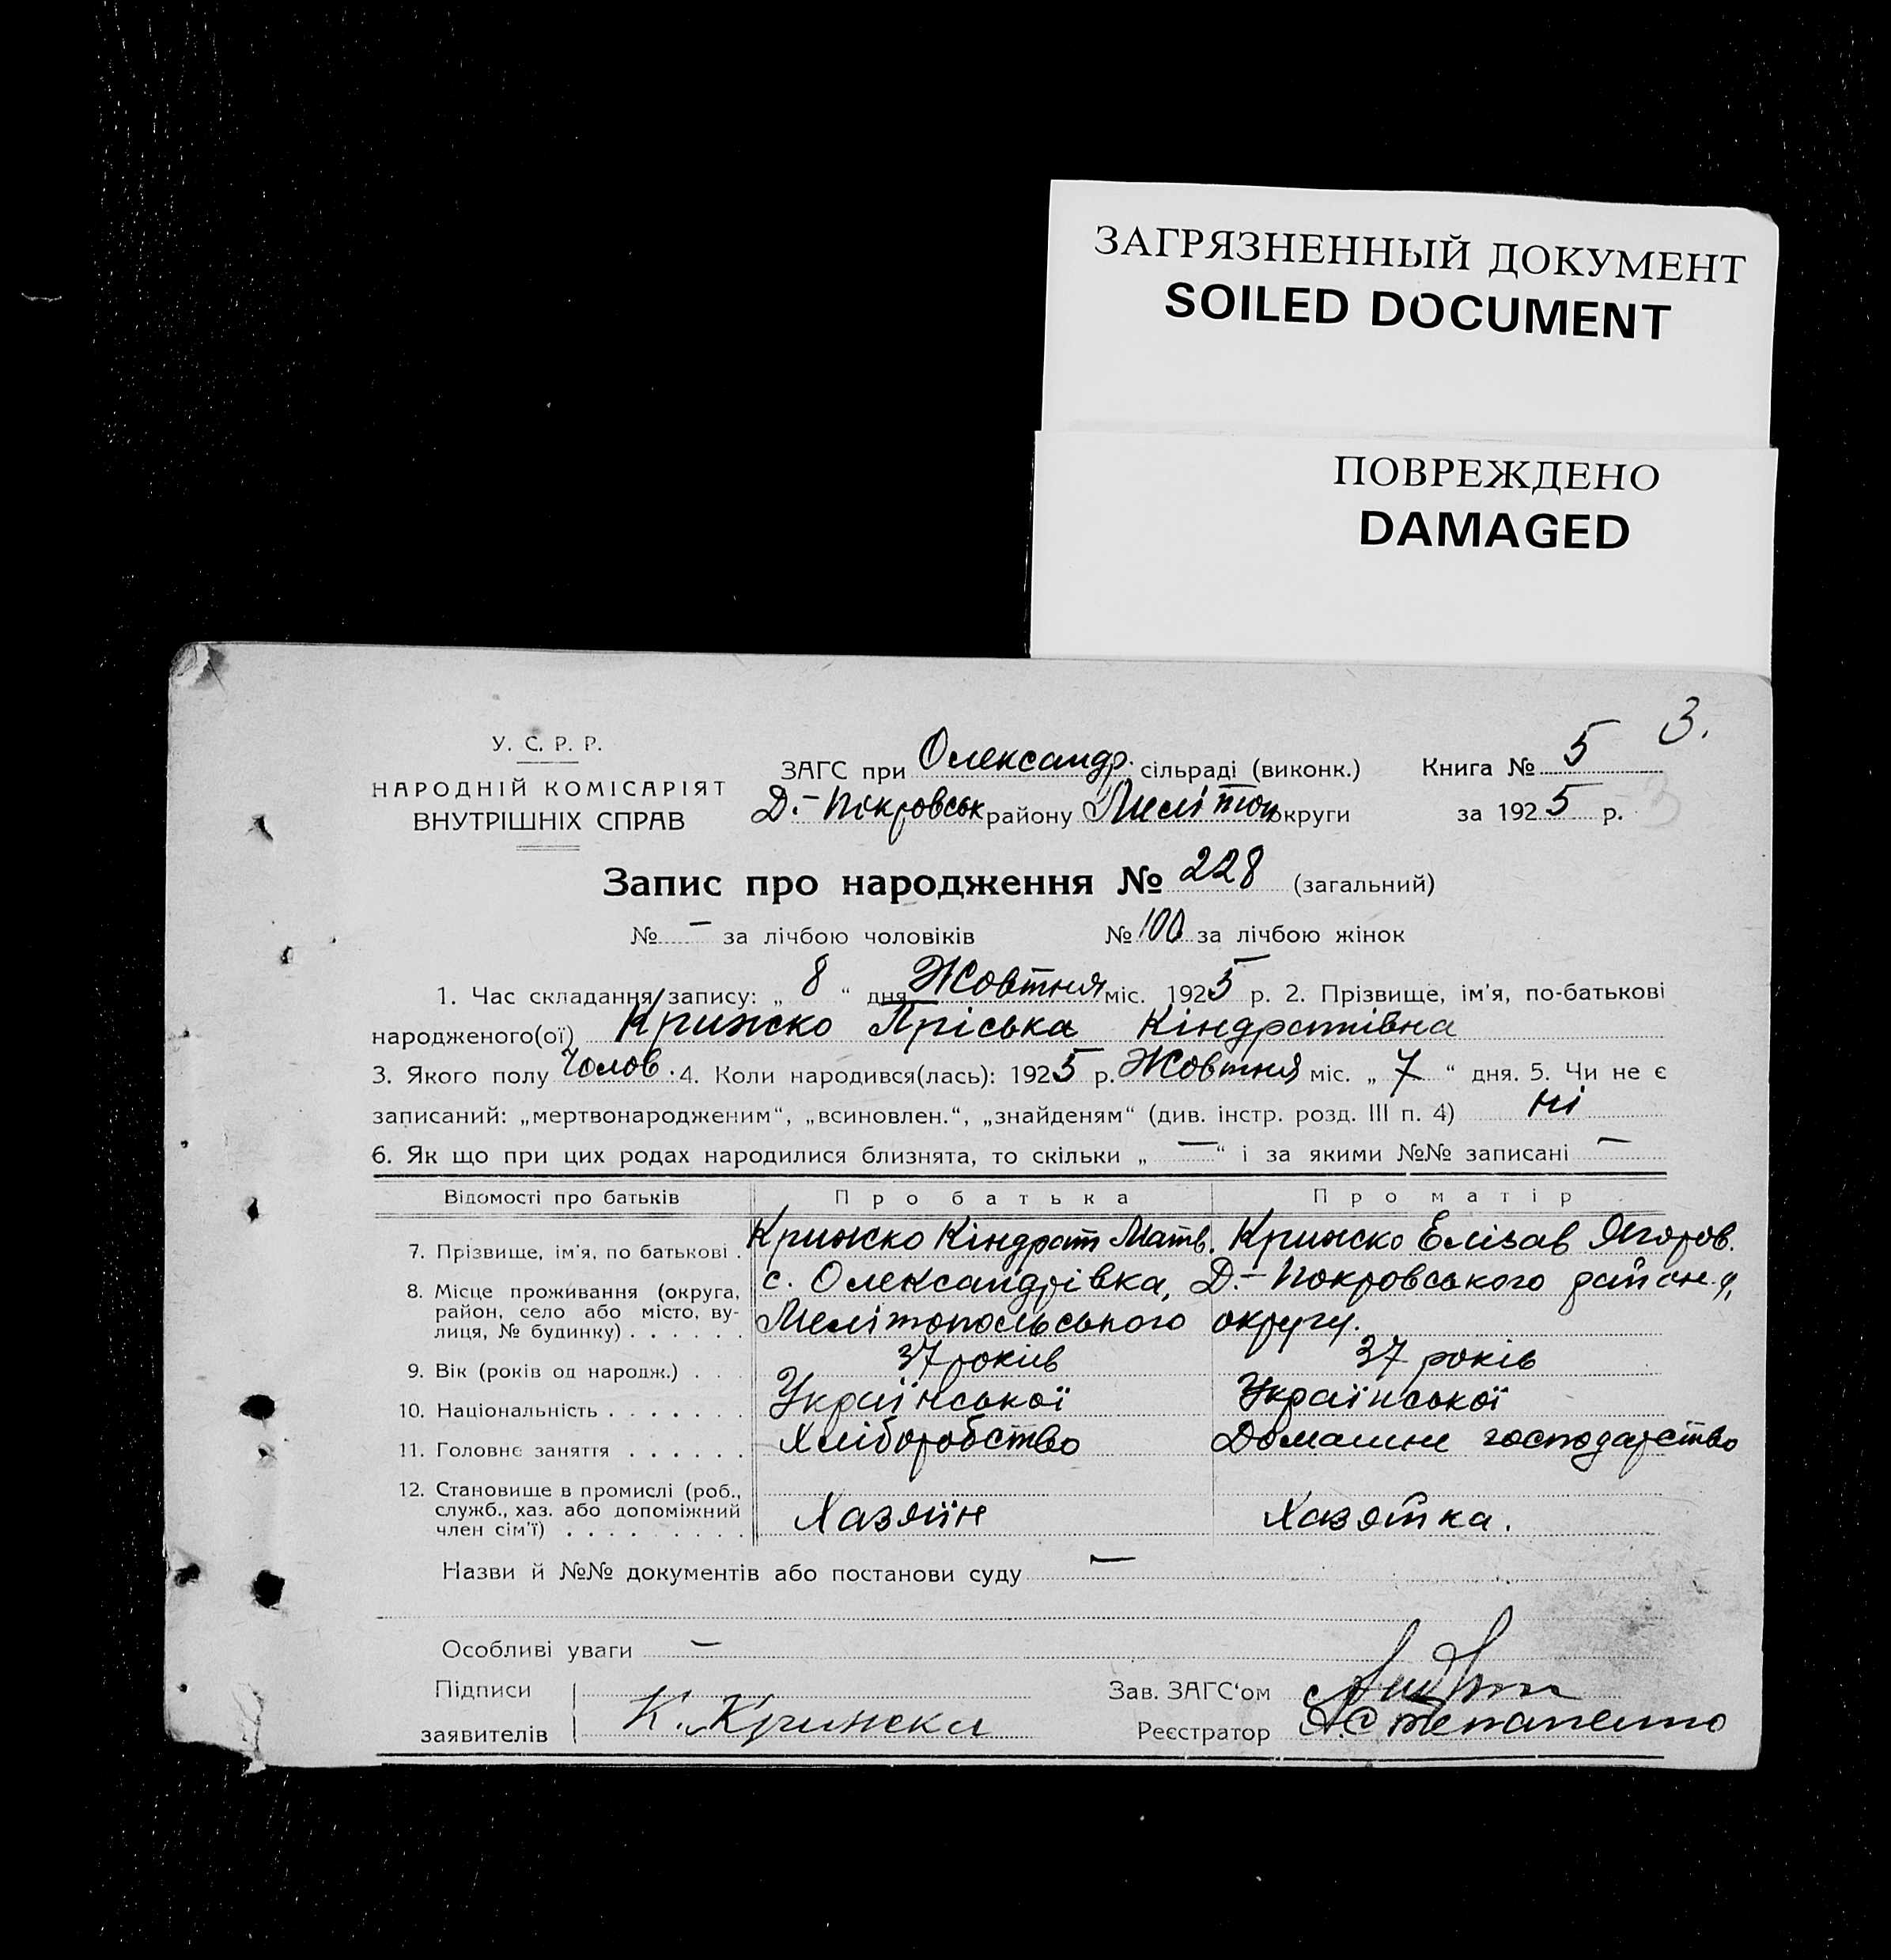 ЗАГРЯЗНЕННЫЙ ДОКУМЕНТ
SOILED DOCUMENT
ПОВРЕЖДЕНО
DAMAGED
3.
У. С. Р. Р.
НАРОДНІЙ КОМІСАРІЯТ
ВНУТРІШНІХ СПРАВ
ЗАГС при Олександр. сільраді (виконк.) Книга № 5
Д.-Покровськ району Мелітоп округи за 1925 р. 3
Запис про народження № 228 (загальний)
№ – за лічбою чоловіків № 100 за лічбою жінок
1. Час складання запису: „ 8 “ дня Жовтня міс. 1925 р. 2. Прізвище, ім'я, по-батькові
народженого(ої) Крижко Пріська Кіндратівна
3. Якого полу Чолов. 4. Коли народився(лась): 1925 р. Жовтня міс. „ 7 “ дня. 5. Чи не є
записаний: „мертвонародженим“, „всиновлен.“, „знайденям“ (див. інстр. розд. III п. 4) ні
6. Як що при цих родах народилися близнята, то скільки „ — “ і за якими №№ записані —
Відомості про батьків Про батька Про матір
7. Прізвище, ім'я, по батькові . Крижко Кіндрат Матв. Крижко Елізав Ягоров.
8. Місце проживання (округа, район, село або місто, вулиця, № будинку) . . . . . . с. Олександрівка, Д.-Покровського району,
Мелітопольського округу.
9. Вік (років од народж.) . . . 37 років 37 років
10. Національність . . . . . . . Української Української
11. Головне заняття . . . . . . Хліборобство Домашнє господарство
12. Становище в промислі (роб., служб., хаз. або допоміжний член сім'ї) . . . . . . . . . Хазяїн Хазяйка.
Назви й №№ документів або постанови суду —
Особливі уваги —
Підписи
заявителів К. Крижски
Зав. ЗАГС‘ом
Реєстратор А Степаненко